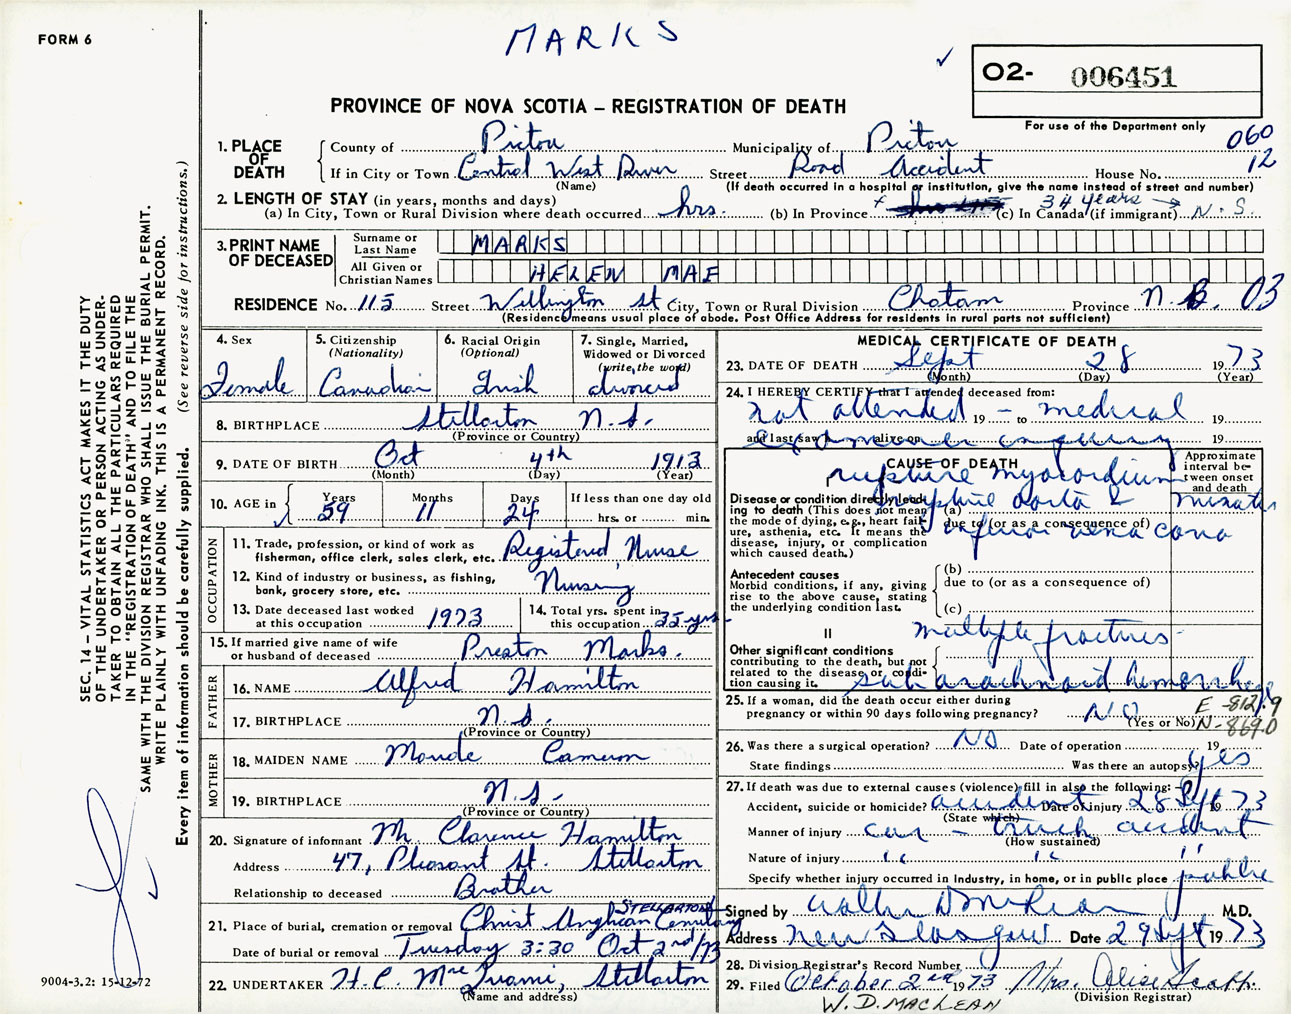 MARKS
FORM 6
O2- 006451
PROVINCE OF NOVA SCOTIA – REGISTRATION OF DEATH
For use of the Department only
060
12
1. PLACE OF DEATH
County of Pictou Municipality of Pictou
If in City or Town Central West River Street Road Accident House No.
(Name) (If death occurred in a hospital or institution, give the name instead of street and number)
2. LENGTH OF STAY (in years, months and days)
(a) In City, Town or Rural Division where death occurred hrs. (b) In Province (c) In Canada (if immigrant) 34 years → N.S.
3. PRINT NAME OF DECEASED
Surname or Last Name MARKS
All Given or Christian Names HELEN MAE
RESIDENCE No. 115 Street Wellington St City, Town or Rural Division Chatam Province N.B. 03
(Residence means usual place of abode. Post Office Address for residents in rural parts not sufficient)
4. Sex Female
5. Citizenship (Nationality) Canadian
6. Racial Origin (Optional) Irish
7. Single, Married, Widowed or Divorced (write the word) divorced
8. BIRTHPLACE Stellarton N.S.
(Province or Country)
9. DATE OF BIRTH Oct 4th 1913
(Month) (Day) (Year)
10. AGE in Years 59 Months 11 Days 24 If less than one day old hrs. or min.
OCCUPATION
11. Trade, profession, or kind of work as fisherman, office clerk, sales clerk, etc. Registered Nurse
12. Kind of industry or business, as fishing, bank, grocery store, etc. Nursing
13. Date deceased last worked at this occupation 1973
14. Total yrs. spent in this occupation 35 yrs
15. If married give name of wife or husband of deceased Preston Marks.
FATHER
16. NAME Alfred Hamilton
17. BIRTHPLACE N.S.
(Province or Country)
MOTHER
18. MAIDEN NAME Maude Cameron
19. BIRTHPLACE N.S.
(Province or Country)
20. Signature of informant Mr Clarence Hamilton
Address 47, Pleasant St. Stellarton
Relationship to deceased Brother
21. Place of burial, cremation or removal Christ Anglican Cemetary STELLARTON
Date of burial or removal Tuesday 3:30 Oct 2nd/73
22. UNDERTAKER H.C. Stellarton
(Name and address)
MEDICAL CERTIFICATE OF DEATH
23. DATE OF DEATH Sept 28 1973
(Month) (Day) (Year)
24. I HEREBY CERTIFY that I attended deceased from:
not attended 19 – to medical 19
and last saw h alive on 19
examiner inquiry
CAUSE OF DEATH
Approximate interval between onset and death
rupture myocardium
Disease or condition directly leading to death (This does not mean the mode of dying, e.g., heart failure, asthenia, etc. It means the disease, injury, or complication which caused death.)
(a) rupture aorta & minutes
due to (or as a consequence of)
inferior vena cava
Antecedent causes
Morbid conditions, if any, giving rise to the above cause, stating the underlying condition last.
(b)
due to (or as a consequence of)
(c)
II
Other significant conditions contributing to the death, but not related to the disease or condition causing it.
multiple fractures
sub arachnoid hemorrhage
25. If a woman, did the death occur either during pregnancy or within 90 days following pregnancy? NO
(Yes or No)
E-812.9
N-869.0
26. Was there a surgical operation? NO Date of operation 19
State findings Was there an autopsy? yes
27. If death was due to external causes (violence) fill in also the following:
Accident, suicide or homicide? accident Date of injury 28 Sept 1973
(State which)
Manner of injury car – truck accident
(How sustained)
Nature of injury " " "
Specify whether injury occurred in Industry, in home, or in public place public
Signed by M.D.
Address New Glasgow Date 29 Sept 1973
28. Division Registrar's Record Number
29. Filed October 2nd 1973 Mrs. Alise Scott.
(Division Registrar)
W.D. MACLEAN
SEC. 14 – VITAL STATISTICS ACT MAKES IT THE DUTY
OF THE UNDERTAKER OR PERSON ACTING AS UNDER-
TAKER TO OBTAIN ALL THE PARTICULARS REQUIRED
IN THE "REGISTRATION OF DEATH" AND TO FILE THE
SAME WITH THE DIVISION REGISTRAR WHO SHALL ISSUE THE BURIAL PERMIT.
WRITE PLAINLY WITH UNFADING INK. THIS IS A PERMANENT RECORD.
Every item of information should be carefully supplied. (See reverse side for instructions.)
9004-3.2: 15-12-72